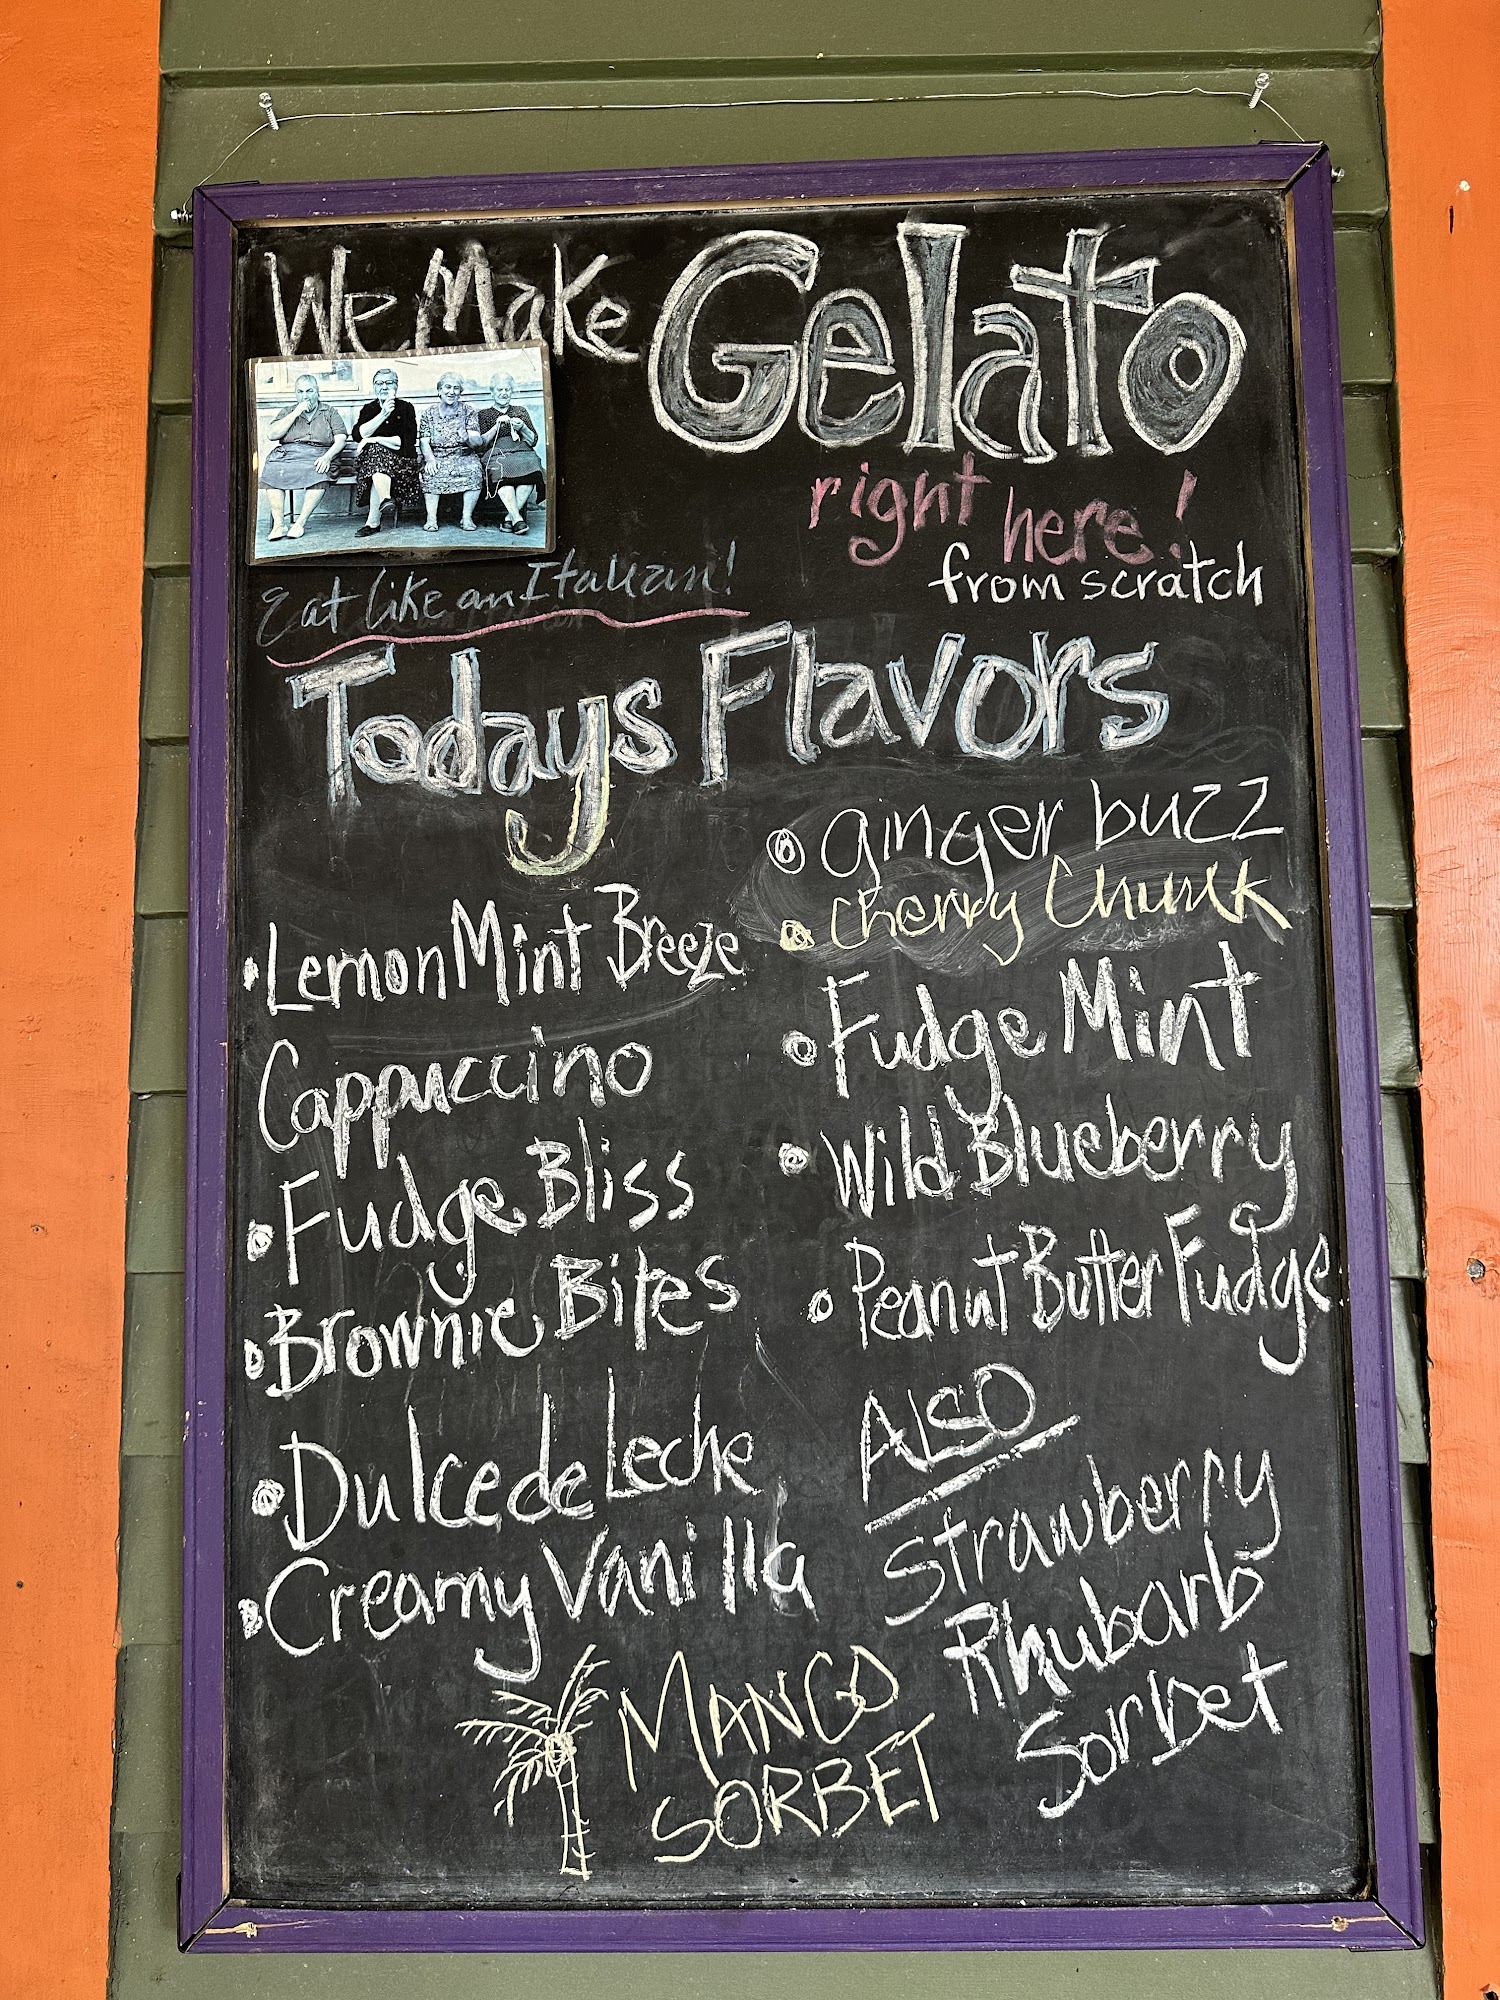 We Make Gelato
right here!
from scratch
Eat like an Italian!
Todays Flavors
Lemon Mint Breeze
Cappuccino
Fudge Bliss
Brownie Bites
Dulce de Leche
Creamy Vanilla
ginger buzz
Cherry Chunk
Fudge Mint
Wild Blueberry
Peanut Butter Fudge
ALSO
Strawberry
Rhubarb
Sorbet
MANGO
SORBET